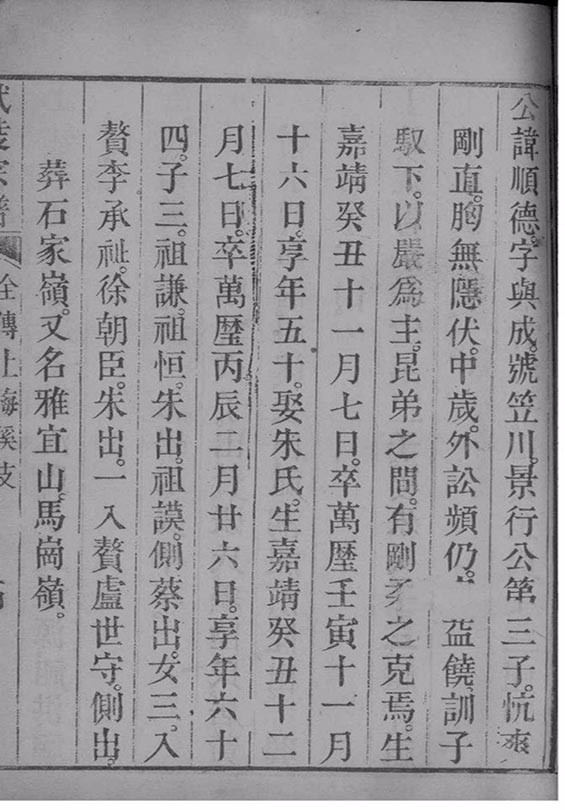 公諱順德。字與成。號笠川。景行公第三子。忼爽
剛直。胸無隱伏。中歲。外訟頻仍。益饒。訓子
馭下。以嚴爲主。昆弟之間。有剛柔之克焉。生
嘉靖癸丑十一月七日。卒萬歷壬寅十一月
十六日。享年五十。娶朱氏。生嘉靖癸丑十二
月七日。卒萬歷丙辰二月廿六日。享年六十
四。子三。祖謙。祖恒。朱出。祖謨。側蔡出。女三。入
贅李承祉。徐朝臣。朱出。一入贅盧世守。側出。
葬石家嶺。又名雅宜山。馬崗嶺。
宗譜 全傳上梅溪支